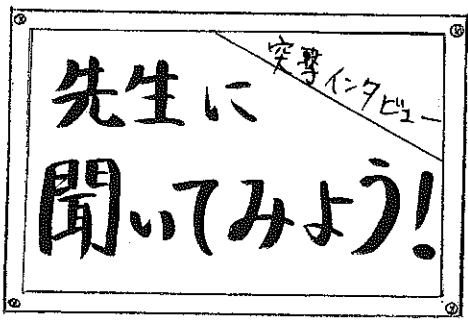 突撃インタビュー
先生に
聞いてみよう!